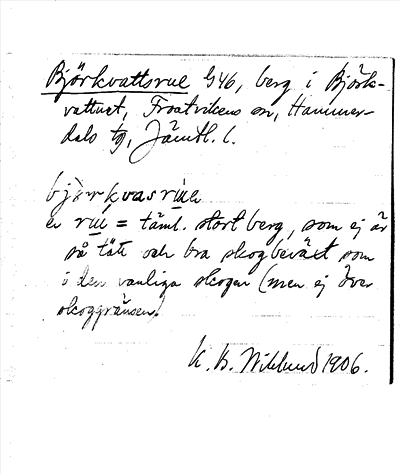 Björkvattsrue G46, berg i Björk-
vattnet, Frostvikens sn, Hammer-
dals tg, Jämtl. l.
bjàrkvasrùe
er rùi = täml. stort berg, som ej är
så tätt och bra skogbeväxt som
i den vanliga skogen (men ej över
skoggränsen)
K. B. Wiklund 1906.